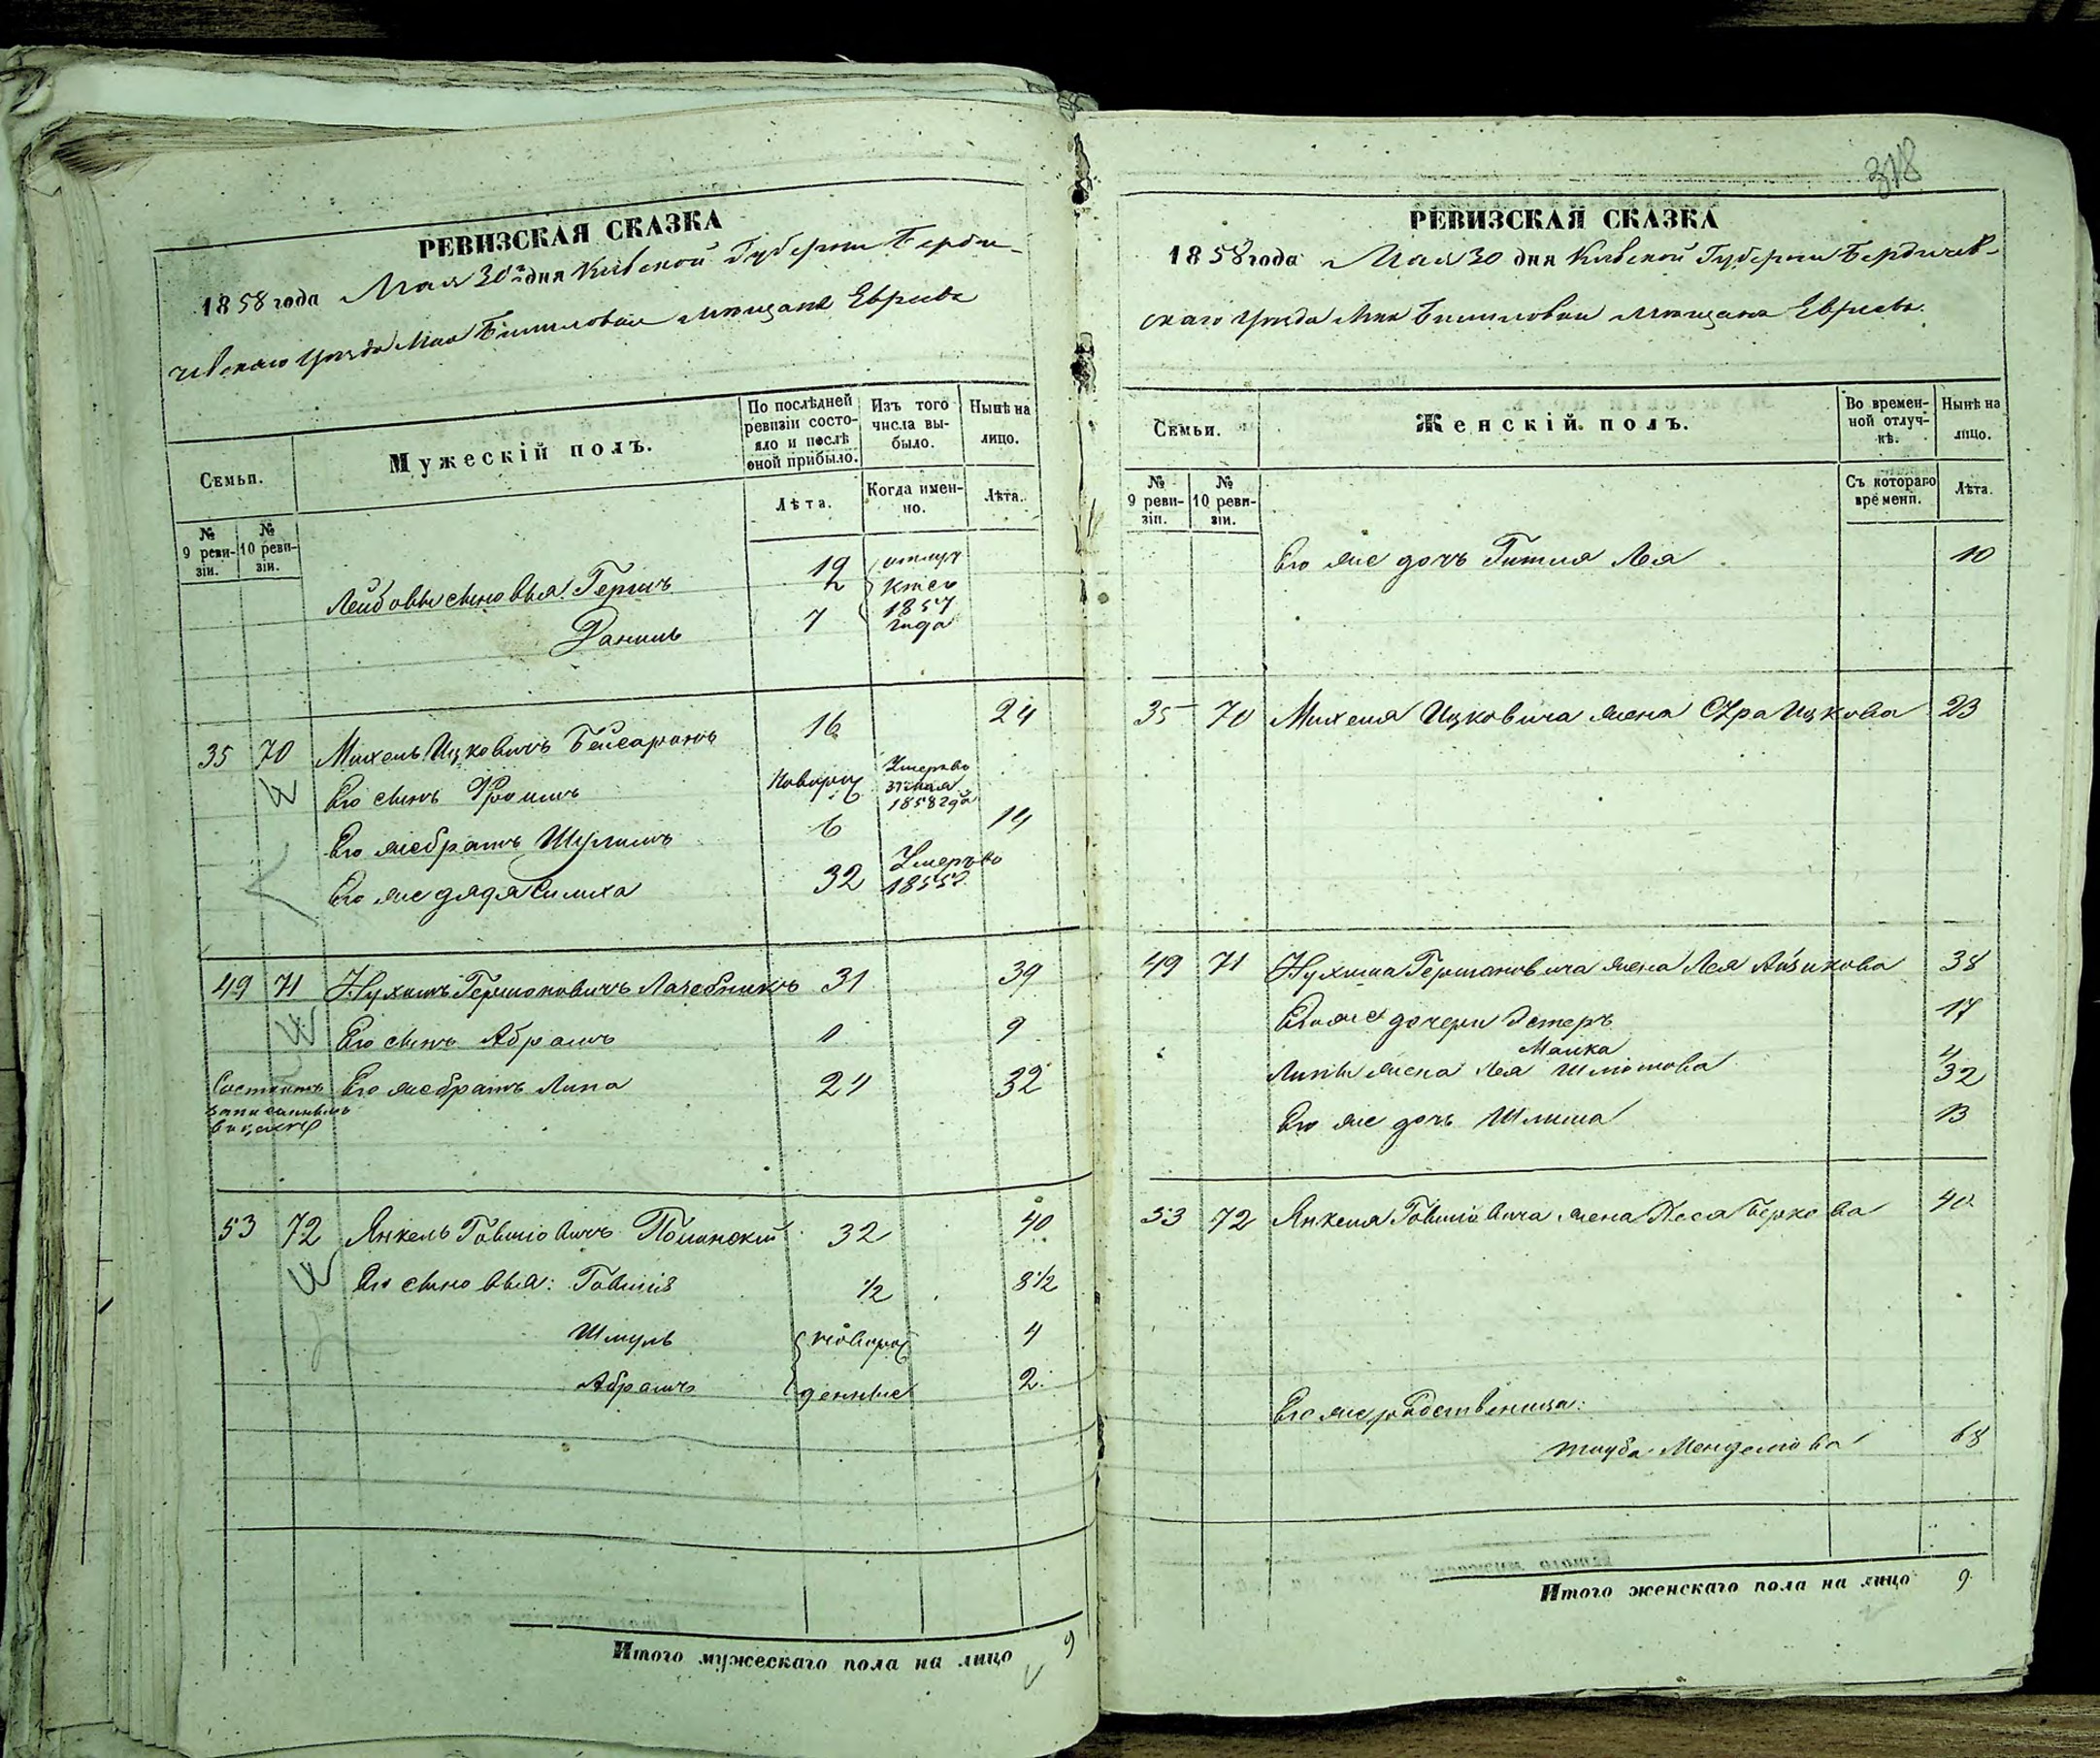 РЕВИЗСКАЯ СКАЗКА
1858 года Мая 30 дня Кіевской Губерніи Берди-
чевскаго уѣзда Мѣс Билиловки мѣщанъ Евреевъ
Семьи.
Мужескій полъ.
По послѣдней ревизіи состояло и послѣ оной прибыло.
Изъ того числа выбыло.
Нынѣ на лицо.
№ 9 ревизіи.
№ 10 ревизіи.
Лѣта.
Когда именно.
Лѣта.
Лейбовы сыновья Гершъ 12
Даниль 7
1857 года
35 70 Михель Ицковичъ 16 24
Его сынъ Фроимъ новорож Умеръ 1858 года
Его же братъ Шулимъ 6 14
Его же дядя Симха 32 Умеръ въ 1855 г.
49 71 Нухимъ Гершоновичъ Лазебникъ 31 39
Его сынъ Абрамъ 1 9
Состоитъ Его же братъ Липа 24 32
записаннымъ
53 72 Янкель Говшіовичъ Полонскій 32 40
Его сыновья: Говшія 1/2 8 1/2
Шмуль новорож 4
Абрамъ денные 2
Итого мужескаго пола на лицо 9
318
РЕВИЗСКАЯ СКАЗКА
1858 года Мая 30 дня Кіевской Губерніи Бердичев-
скаго уѣзда Мѣс Билиловки мѣщанъ Евреевъ.
Семьи.
Женскій полъ.
Во временной отлучкѣ.
Нынѣ на лицо.
№ 9 ревизіи.
№ 10 ревизіи.
Съ котораго времени.
Лѣта.
Его же дочь Гитля Лея 10
35 70 Михеля Ицковича жена Сура Ицкова 23
49 71 Нухима Гершоновича жена Лея Айзикова 38
Его же дочери Эстеръ 17
Малка 4
Липы жена Лея Шмотова 32
Его же дочь 13
53 72 Янкеля Говшіовича жена Песя Беркова 40
Его же родственица:
Тауба Менделiова 68
Итого женскаго пола на лицо 9